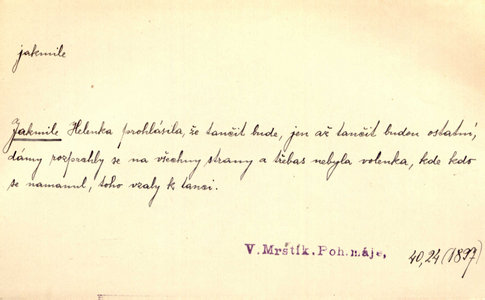 jakmile
Jakmile Helenka prohlásila, že tančit bude, jen až tančit budou ostatní,
dámy rozprahly se na všechny strany a třebas nebyla volenka, kde kdo
se namanul, toho vzaly k tanci.
V. Mrštík. Poh. máje, 40,24 (1897)